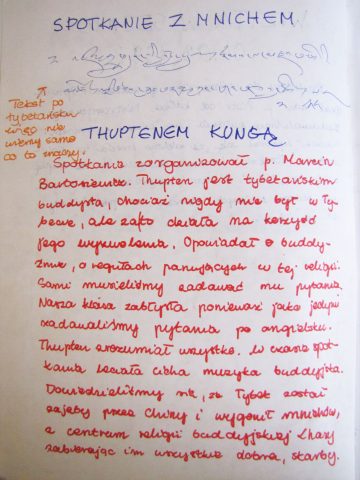 SPOTKANIE Z MNICHEM
Tekst po
tybetańsku
kungo nie
wiemy same
co to znaczy.
THUPTENEM KUNGĄ
Spotkanie zorganizował p. Marcin
Bartosiewicz. Thupten jest tybetańskim
buddystą, chociaż nigdy nie był w Ty-
becie, ale za to działa na korzyść
jego wyzwolenia. Opowiadał o buddy-
zmie, o regułach panujących w tej religii.
Sami musieliśmy zadawać mu pytania.
Nasza klasa zabłysła ponieważ jako jedyni
zadawaliśmy pytania po angielsku.
Thupten zrozumiał wszystko. W czasie spot-
kania leciała cicha muzyka buddyjska.
Dowiedzieliśmy się, że Tybet został
zajęty przez Chiny i wygonił mnichów,
a centrum religii buddyjskiej Lhasy
zabierając im wszystkie dobra, skarby.